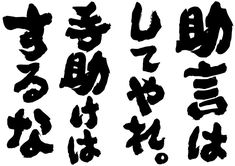 助言は
してやれ。
手助けは
するな